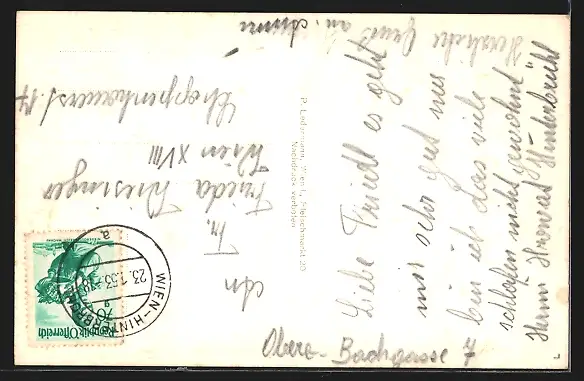 Liebe Friedl es geht
mir sehr gut nur
bin ich das viele
schlafen nicht gewohnt
Herrn
Hinterbrühl
Obere-Bachgasse 7
Herzliche Grüße an
P. Ledermann, Wien I, Fleischmarkt 20
Nachdruck verboten
An
Fr.
Frieda Wiesinger
Wien XVIII
Schoppenhauerst. 14
WIEN-HINTERBRÜHL
23.1.53
a
Republik Österreich